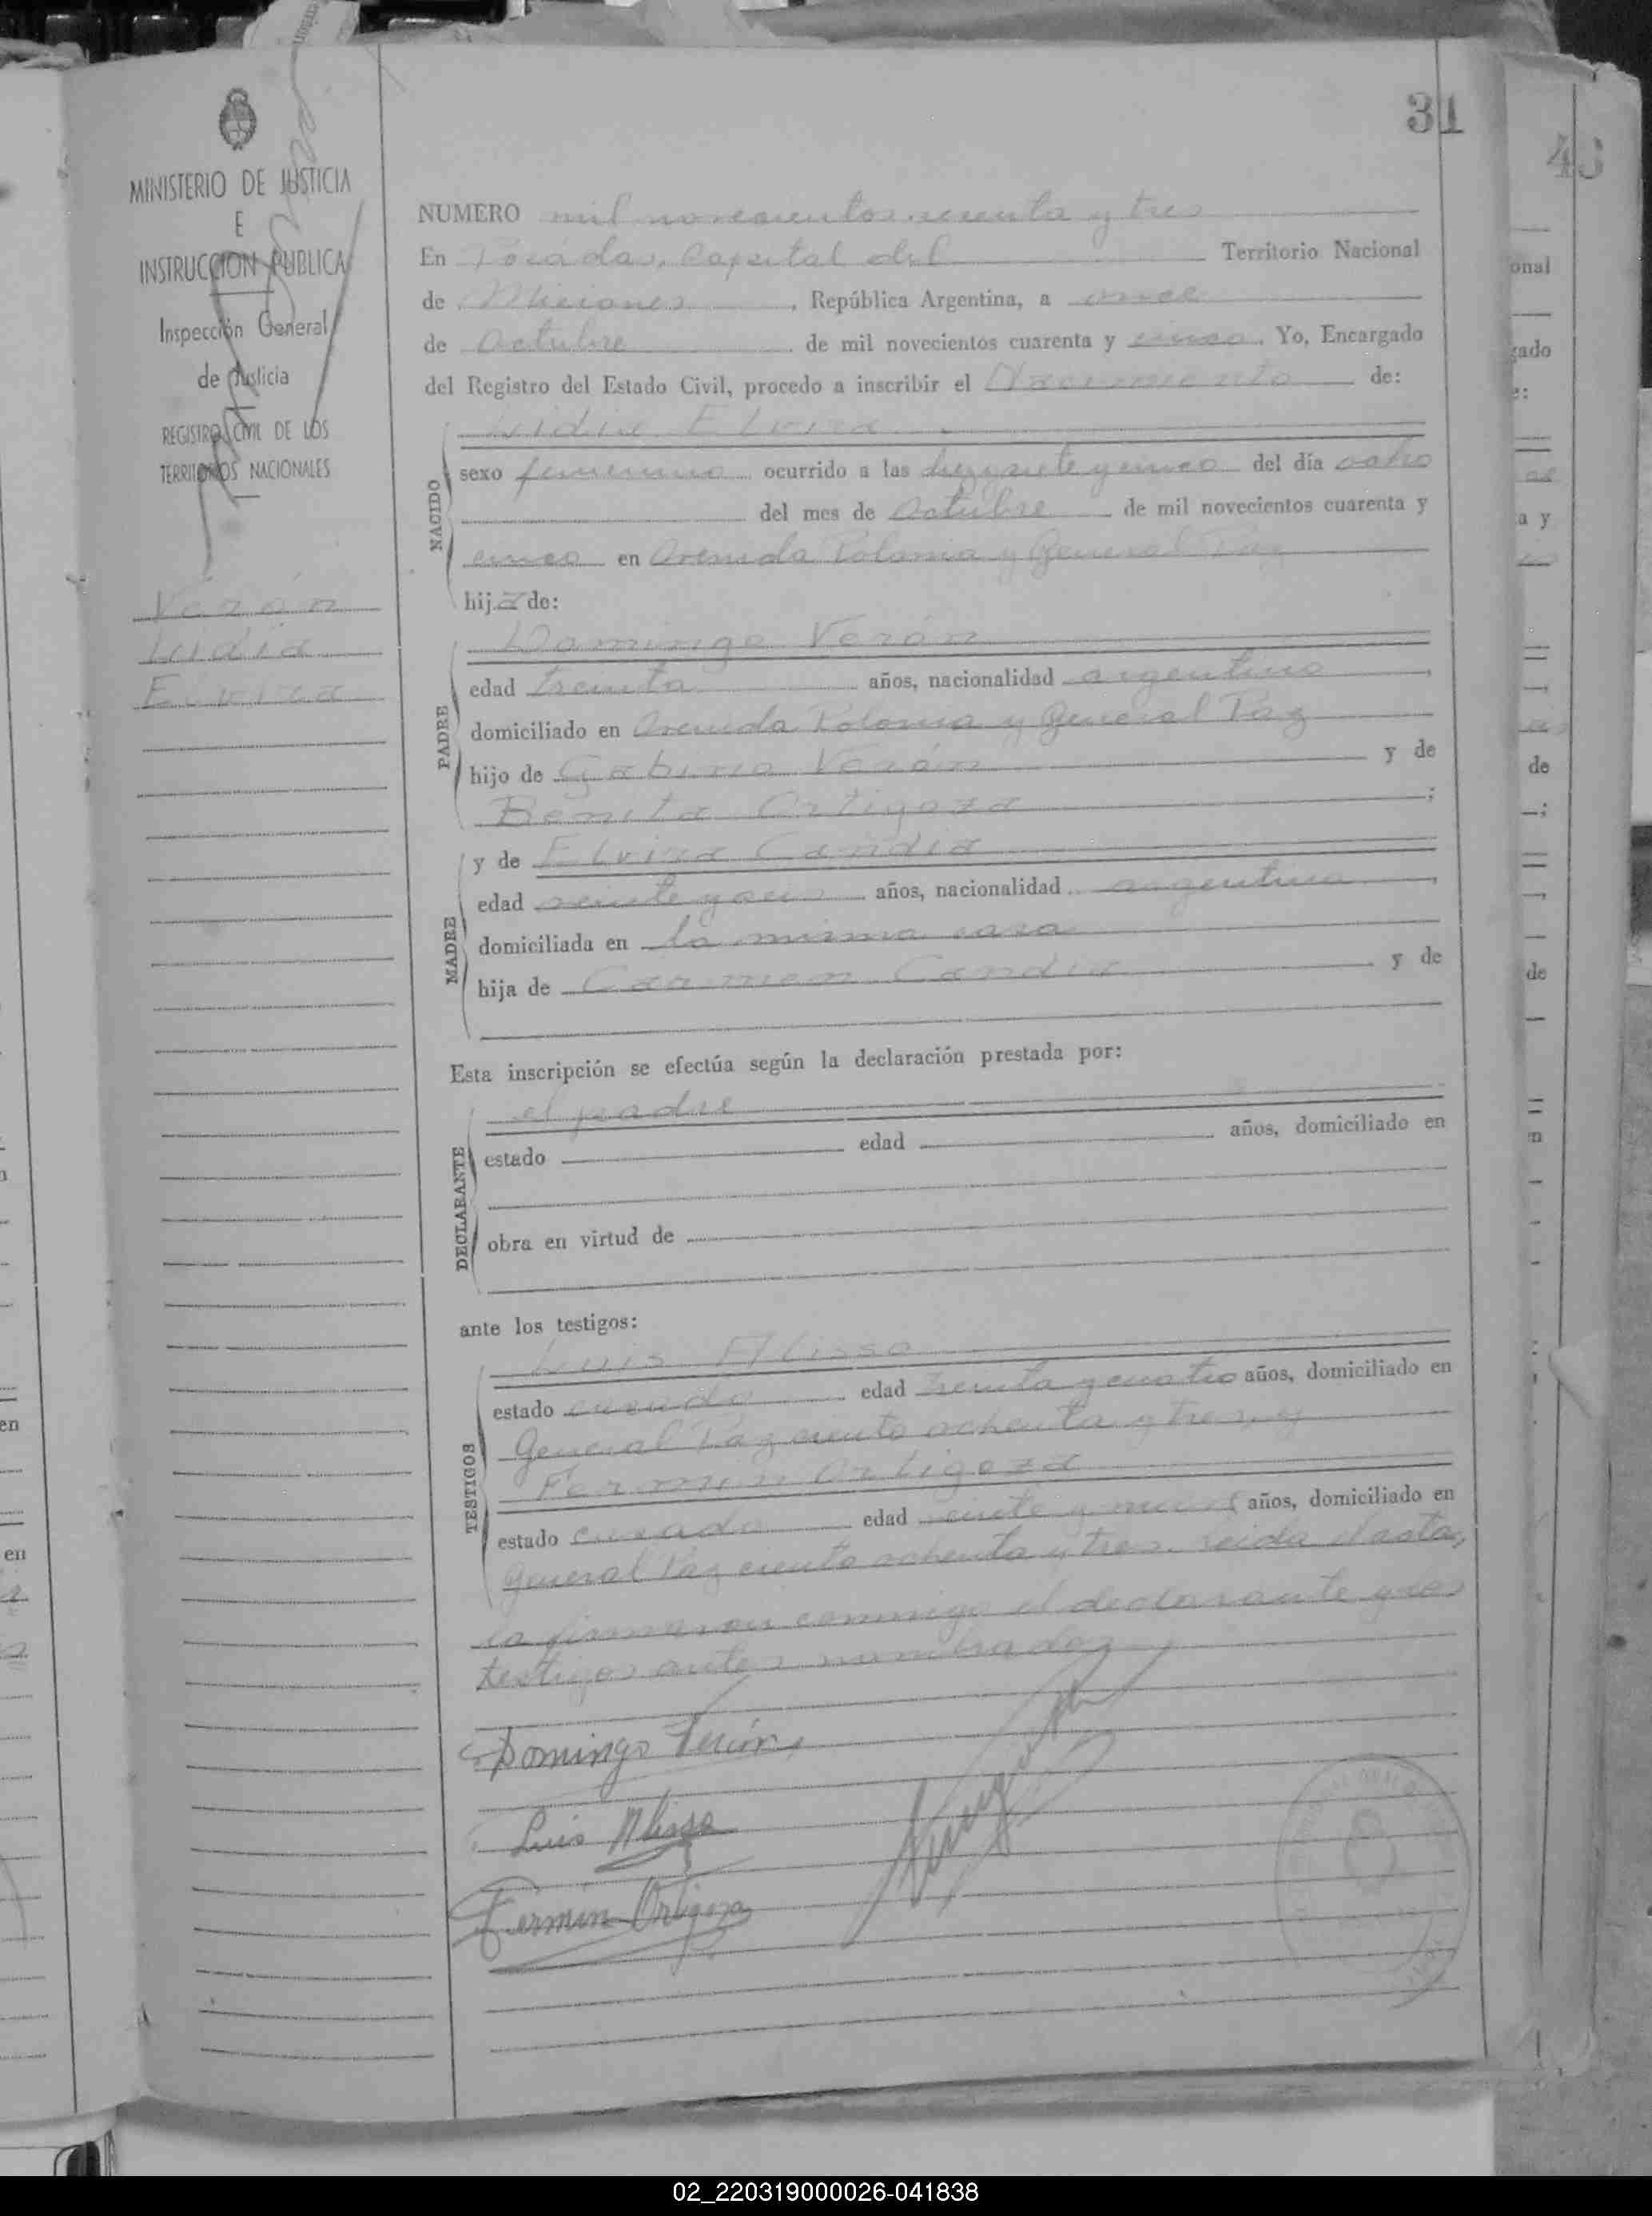 31
MINISTERIO DE JUSTICIA
E
INSTRUCCION PUBLICA
Inspección General
de Justicia
REGISTRO CIVIL DE LOS
TERRITORIOS NACIONALES
Verón
Lidia
Elvira
NUMERO mil novecientos y tres
En Posadas, Capital del Territorio Nacional
de Misiones, República Argentina, a once
de Octubre de mil novecientos cuarenta y cinco. Yo, Encargado
del Registro del Estado Civil, procedo a inscribir el Nacimiento de:
Elvira
NACIDO
sexo femenino ocurrido a las del día ocho
del mes de Octubre de mil novecientos cuarenta y
cinco en Avenida Polonia y General Paz
hija de:
PADRE
Domingo Verón
edad treinta años, nacionalidad argentino,
domiciliado en Avenida Polonia y General Paz
hijo de Gabino Verón y de
Benita Ortigoza;
MADRE
y de Elvira Candia
edad años, nacionalidad argentina,
domiciliada en la misma casa
hija de Carmen Candia y de
Esta inscripción se efectúa según la declaración prestada por:
DECLARANTE
el padre
estado edad años, domiciliado en
obra en virtud de
ante los testigos:
TESTIGOS
Luis Alisso
estado casado edad treinta y cuatro años, domiciliado en
General Paz ciento ochenta y tres, y
Fermin Ortigoza
estado casado edad veinte y años, domiciliado en
General Paz ciento ochenta y tres. Leida el acta,
la firmaron conmigo el declarante y los
testigos antes nombrados
Domingo Verón
Luis
Fermin Ortigoza
43
onal
gado
e:
a y
de
de
en
en
02_220319000026-041838